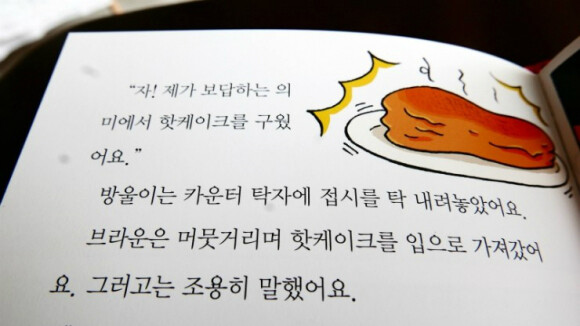 “자! 제가 보답하는 의
미에서 핫케이크를 구웠
어요.”
방울이는 카운터 탁자에 접시를 탁 내려놓았어요.
브라운은 머뭇거리며 핫케이크를 입으로 가져갔어
요. 그러고는 조용히 말했어요.